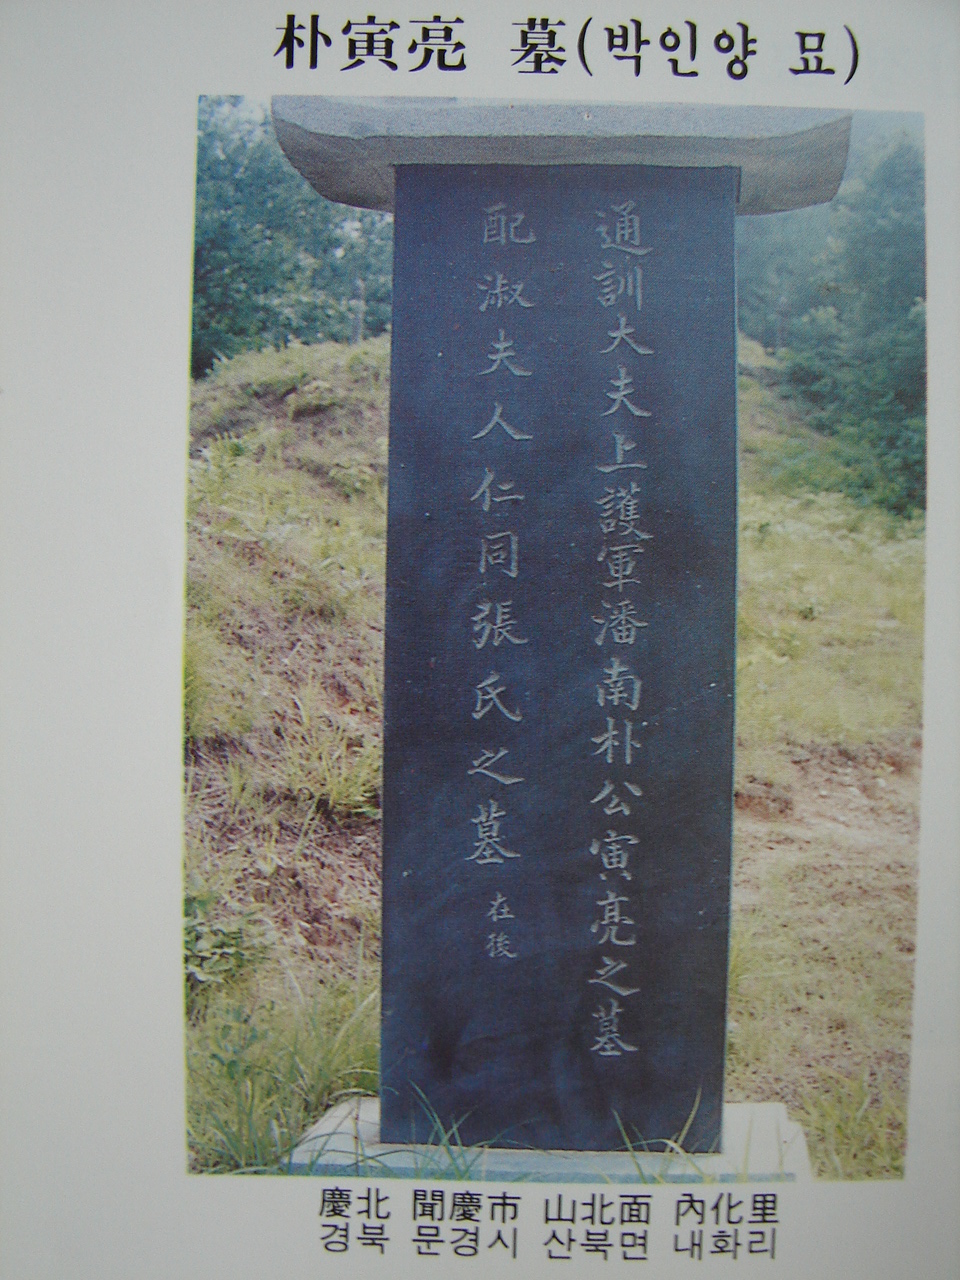 朴寅亮 墓(박인양 묘)
通訓大夫上護軍潘南朴公寅亮之墓
配淑夫人仁同張氏之墓 在後
慶北 聞慶市 山北面 內化里
경북 문경시 산북면 내화리